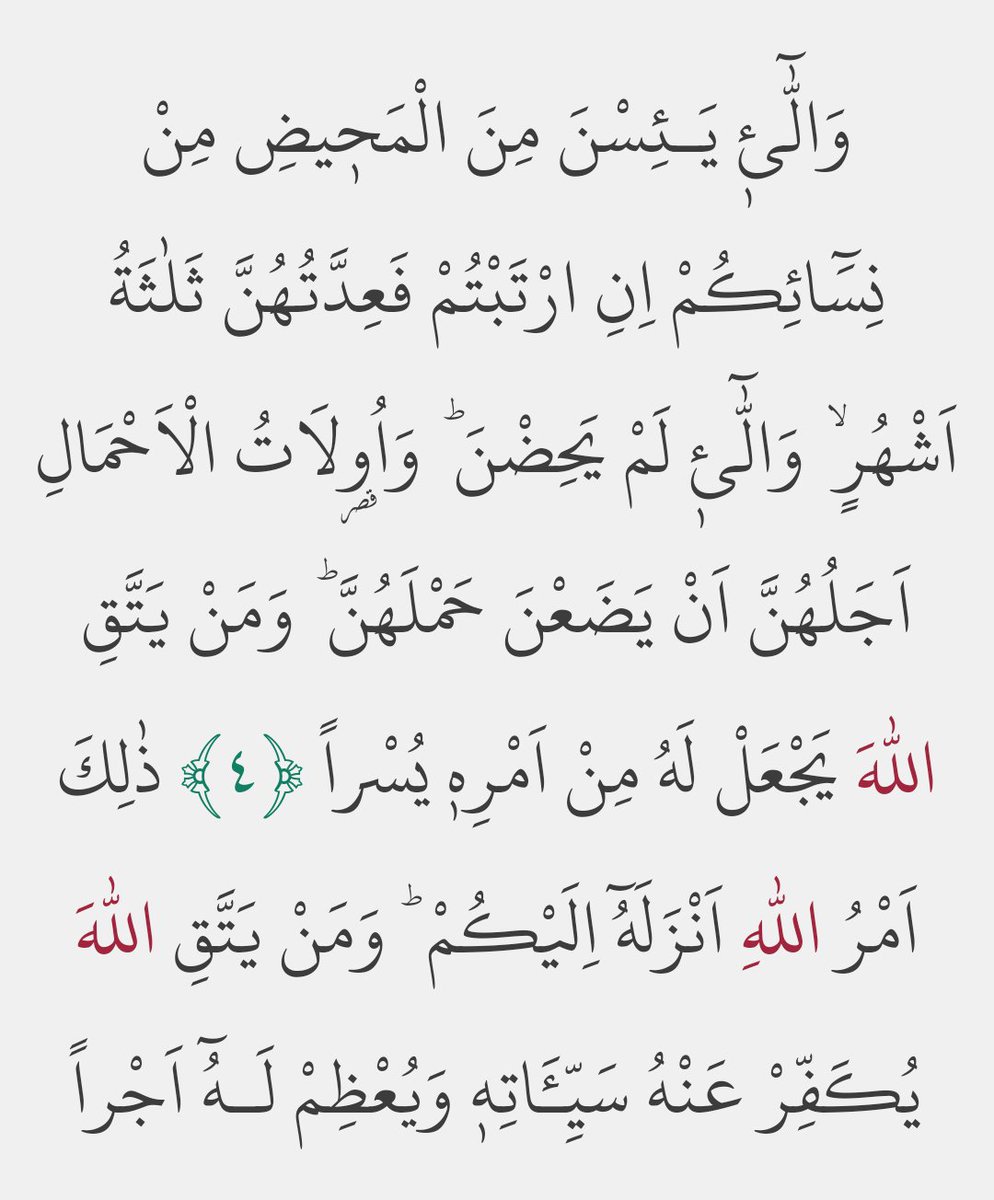 وَالّٰٓئٖ يَـئِسْنَ مِنَ الْمَحٖيضِ مِنْ
نِسَٓائِكُمْ اِنِ ارْتَبْتُمْ فَعِدَّتُهُنَّ ثَلٰثَةُ
اَشْهُرٍۙ وَالّٰٓئٖ لَمْ يَحِضْنَؕ وَاُو۬لَاتُ الْاَحْمَالِ
اَجَلُهُنَّ اَنْ يَضَعْنَ حَمْلَهُنَّؕ وَمَنْ يَتَّقِ
اللّٰهَ يَجْعَلْ لَهُ مِنْ اَمْرِهٖ يُسْراً ﴿٤﴾ ذٰلِكَ
اَمْرُ اللّٰهِ اَنْزَلَهُٓ اِلَيْكُمْؕ وَمَنْ يَتَّقِ اللّٰهَ
يُكَفِّرْ عَنْهُ سَيِّـَٔاتِهٖ وَيُعْظِمْ لَـهُٓ اَجْراً